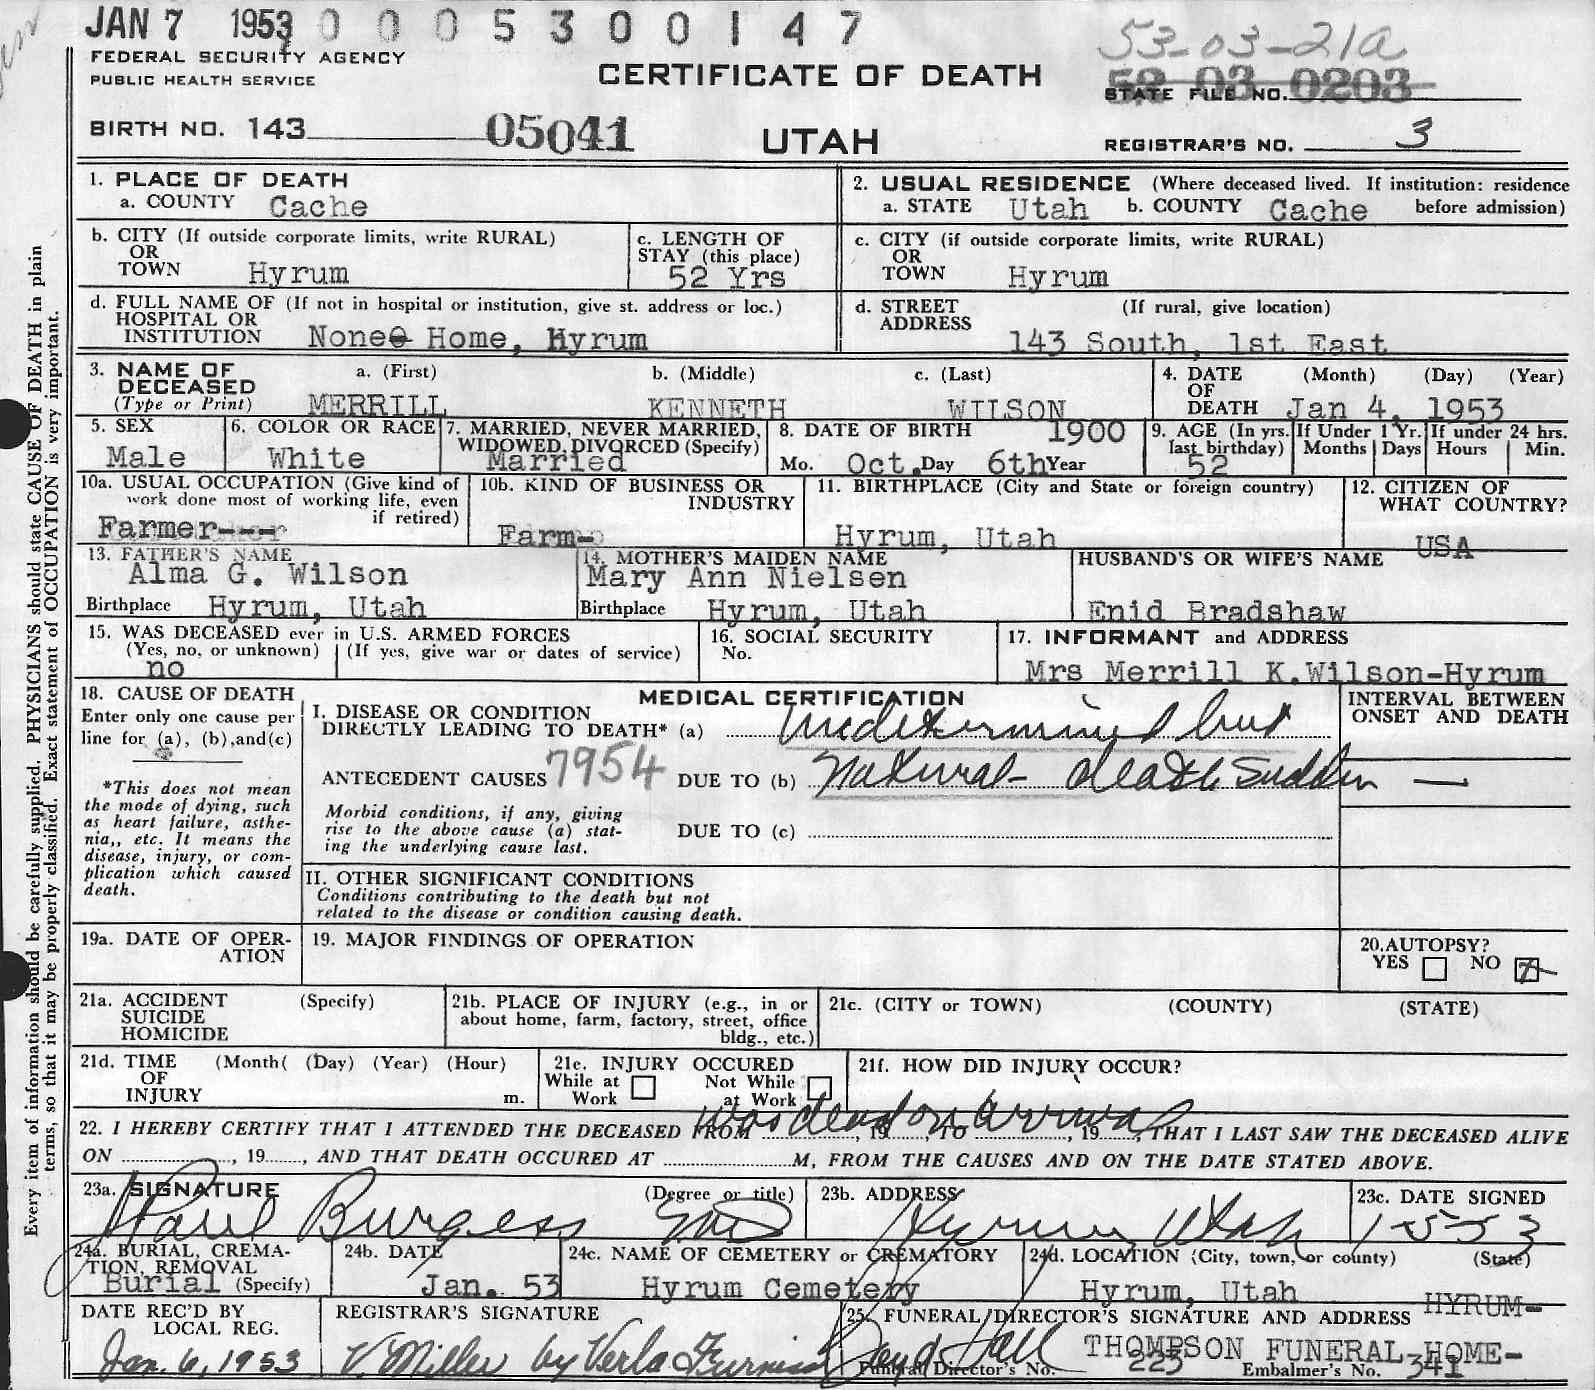 JAN 7 1953 0 0 0 5 3 0 0 1 4 7
FEDERAL SECURITY AGENCY
PUBLIC HEALTH SERVICE
CERTIFICATE OF DEATH
53-03-21a
52 03 0203
STATE FILE NO.
BIRTH NO. 143 05041
UTAH
REGISTRAR'S NO. 3
1. PLACE OF DEATH
a. COUNTY Cache
2. USUAL RESIDENCE (Where deceased lived. If institution: residence
a. STATE Utah b. COUNTY Cache before admission)
b. CITY (If outside corporate limits, write RURAL)
OR
TOWN Hyrum
c. LENGTH OF
STAY (this place)
52 Yrs
c. CITY (if outside corporate limits, write RURAL)
OR
TOWN Hyrum
d. FULL NAME OF (If not in hospital or institution, give st. address or loc.)
HOSPITAL OR
INSTITUTION None Home, Hyrum
d. STREET (If rural, give location)
ADDRESS
143 South, 1st East
3. NAME OF a. (First) b. (Middle) c. (Last)
DECEASED
(Type or Print) MERRILL KENNETH WILSON
4. DATE (Month) (Day) (Year)
OF
DEATH Jan 4, 1953
5. SEX
Male
6. COLOR OR RACE
White
7. MARRIED, NEVER MARRIED,
WIDOWED, DIVORCED (Specify)
Married
8. DATE OF BIRTH 1900
Mo. Oct. Day 6th Year
9. AGE (In yrs.
last birthday)
52
If Under 1 Yr.
Months Days
If under 24 hrs.
Hours Min.
10a. USUAL OCCUPATION (Give kind of
work done most of working life, even
if retired)
Farmer---
10b. KIND OF BUSINESS OR
INDUSTRY
Farm-
11. BIRTHPLACE (City and State or foreign country)
Hyrum, Utah
12. CITIZEN OF
WHAT COUNTRY?
USA
13. FATHER'S NAME
Alma G. Wilson
Birthplace Hyrum, Utah
14. MOTHER'S MAIDEN NAME
Mary Ann Nielsen
Birthplace Hyrum, Utah
HUSBAND'S OR WIFE'S NAME
Enid Bradshaw
15. WAS DECEASED ever in U.S. ARMED FORCES
(Yes, no, or unknown) (If yes, give war or dates of service)
no
16. SOCIAL SECURITY
No.
17. INFORMANT and ADDRESS
Mrs Merrill K.Wilson-Hyrum
18. CAUSE OF DEATH
Enter only one cause per
line for (a), (b),and(c)
*This does not mean
the mode of dying, such
as heart failure, asthe-
nia,, etc. It means the
disease, injury, or com-
plication which caused
death.
MEDICAL CERTIFICATION
I. DISEASE OR CONDITION
DIRECTLY LEADING TO DEATH* (a) undetermined but
ANTECEDENT CAUSES 7954 DUE TO (b) Natural- death Sudden
Morbid conditions, if any, giving
rise to the above cause (a) stat-
ing the underlying cause last.
DUE TO (c)
II. OTHER SIGNIFICANT CONDITIONS
Conditions contributing to the death but not
related to the disease or condition causing death.
INTERVAL BETWEEN
ONSET AND DEATH
—
19a. DATE OF OPER-
ATION
19. MAJOR FINDINGS OF OPERATION
20.AUTOPSY?
YES NO X
21a. ACCIDENT (Specify)
SUICIDE
HOMICIDE
21b. PLACE OF INJURY (e.g., in or
about home, farm, factory, street, office
bldg., etc.)
21c. (CITY or TOWN) (COUNTY) (STATE)
21d. TIME (Month( (Day) (Year) (Hour)
OF
INJURY m.
21e. INJURY OCCURED
While at Not While
Work at Work
21f. HOW DID INJURY OCCUR?
was dead on arrival
22. I HEREBY CERTIFY THAT I ATTENDED THE DECEASED FROM , 19 , TO , 19 , THAT I LAST SAW THE DECEASED ALIVE
ON , 19 , AND THAT DEATH OCCURED AT M, FROM THE CAUSES AND ON THE DATE STATED ABOVE.
23a. SIGNATURE (Degree or title)
Paul Burgess MD
23b. ADDRESS
Hyrum Utah
23c. DATE SIGNED
1-5-53
24a. BURIAL, CREMA-
TION, REMOVAL
Burial (Specify)
24b. DATE
Jan. 53
24c. NAME OF CEMETERY or CREMATORY
Hyrum Cemetery
24d. LOCATION (City, town, or county) (State)
Hyrum, Utah
DATE REC'D BY
LOCAL REG.
Jan. 6, 1953
REGISTRAR'S SIGNATURE
V. Miller by Verla
25. FUNERAL DIRECTOR'S SIGNATURE AND ADDRESS HYRUM-
Loyd Hall THOMPSON FUNERAL HOME-
Funeral Director's No. 223 Embalmer's No. 341
Every item of information should be carefully supplied. PHYSICIANS should state CAUSE OF DEATH in plain
terms, so that it may be properly classified. Exact statement of OCCUPATION is very important.